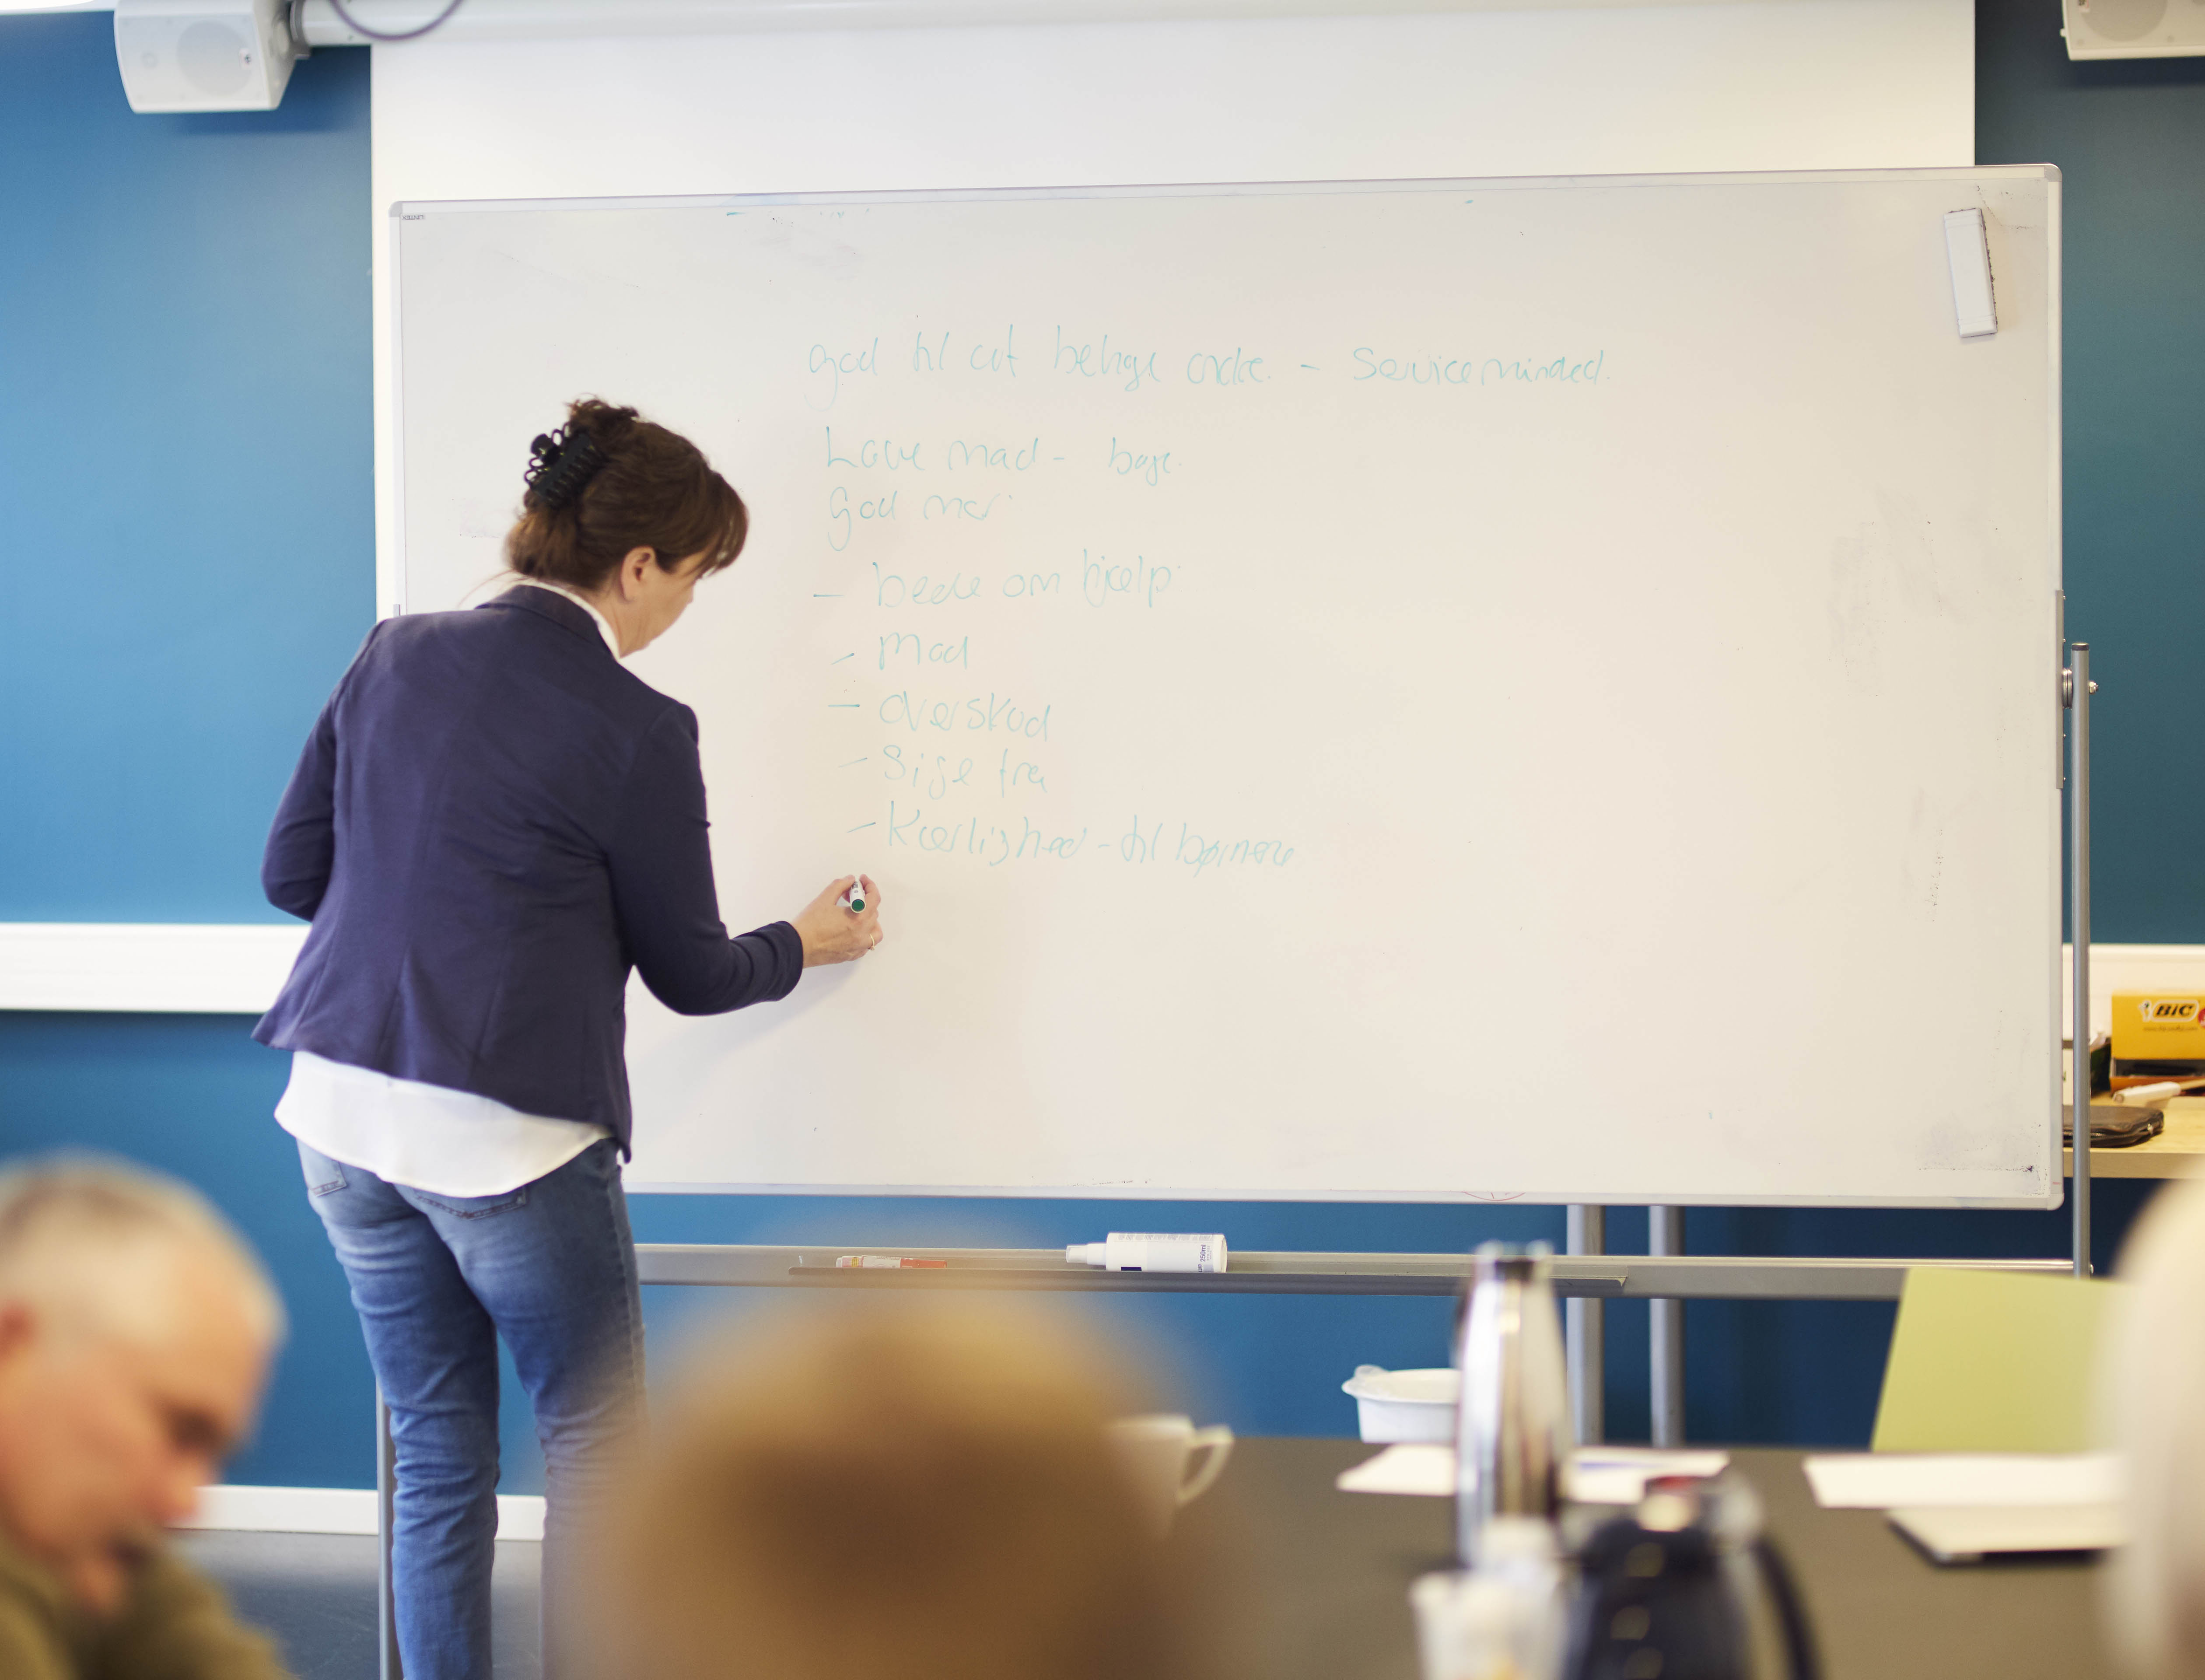 god til at behage andre. - Serviceminded.
Lave mad - bage.
God mor
- bede om hjælp
- Mod
- Overskud
- Sige fra
- Kærlighed - til børnene
BiC